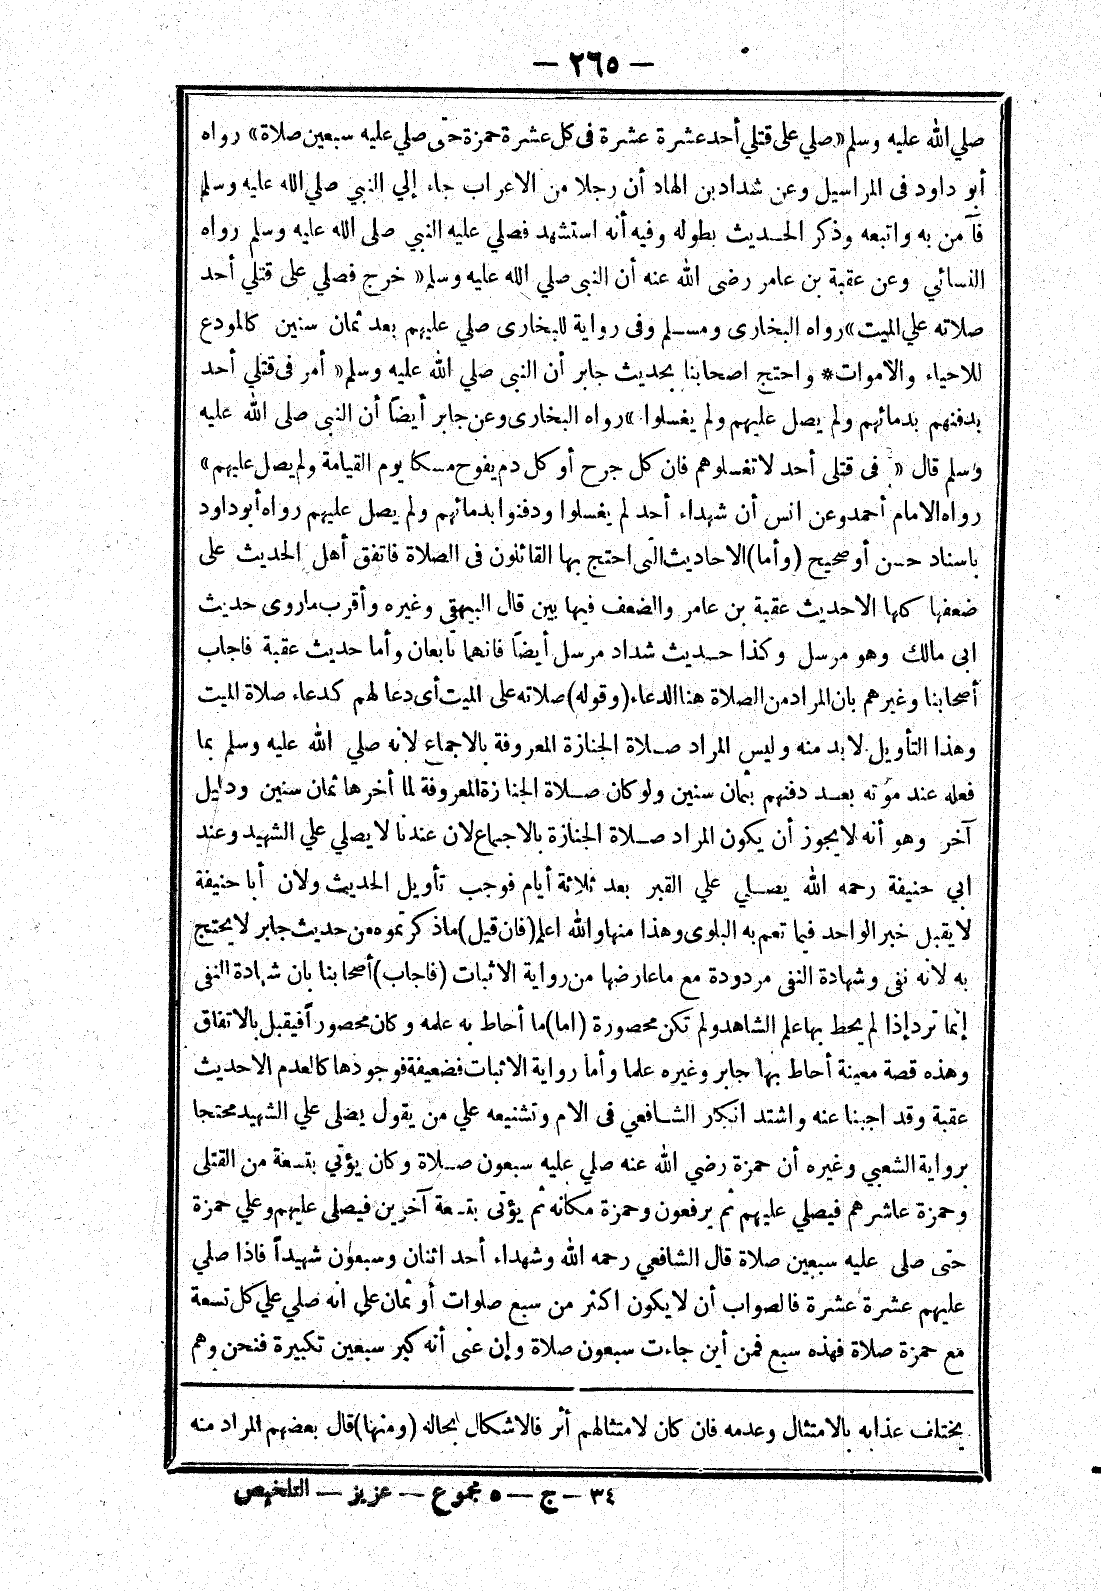 — ٢٦٥ —
صلي الله عليه وسلم «صلي على قتلي أحد عشرة عشرة فى كل عشرة حمزة حتى صلي عليه سبعين صلاة» رواه
أبو داود فى المراسيل وعن شداد بن الهاد أن رجلا من الاعراب جاء إلي النبي صلي الله عليه وسلم
فآمن به واتبعه وذكر الحديث بطوله وفيه أنه استشهد فصلي عليه النبي صلى الله عليه وسلم رواه
النسائي وعن عقبة بن عامر رضى الله عنه أن النبى صلي الله عليه وسلم « خرج فصلي على قتلي أحد
صلاته علي الميت» رواه البخارى ومسلم وفى رواية للبخارى صلي عليهم بعد ثمان سنين كالمودع
للاحياء والاموات* واحتج اصحابنا بحديث جابر أن النبى صلي الله عليه وسلم « أمر فى قتلي أحد
بدفنهم بدمائهم ولم يصل عليهم ولم يغسلوا » رواه البخارى وعن جابر أيضاً أن النبى صلى الله عليه
وسلم قال « فى قتلى أحد لا تغسلوهم فان كل جرح أو كل دم يفوح مسكا يوم القيامة ولم يصل عليهم»
رواه الامام أحمد وعن انس أن شهداء أحد لم يغسلوا ودفنوا بدمائهم ولم يصل عليهم رواه أبو داود
باسناد حسن أو صحيح (وأما) الاحاديث التى احتج بها القائلون فى الصلاة فاتفق أهل الحديث على
ضعفها كلها الاحديث عقبة بن عامر والضعف فيها بين قال البيهقى وغيره وأقرب ماروى حديث
ابى مالك وهو مرسل وكذا حديث شداد مرسل أيضاً فانهما تابعان وأما حديث عقبة فاجاب
أصحابنا وغيرهم بان المراد من الصلاة هنا الدعاء (وقوله) صلاته على الميت أى دعا لهم كدعاء صلاة الميت
وهذا التأويل لا بد منه وليس المراد صلاة الجنازة المعروفة بالاجماع لانه صلي الله عليه وسلم بما
فعله عند موته بعد دفنهم بثمان سنين ولو كان صلاة الجنازة المعروفة لما أخرها ثمان سنين ودليل
آخر وهو أنه لا يجوز أن يكون المراد صلاة الجنازة بالاجماع لان عندنا لا يصلي علي الشهيد وعند
ابي حنيفة رحمه الله يصلي علي القبر بعد ثلاثة أيام فوجب تأويل الحديث ولان أبا حنيفة
لا يقبل خبر الواحد فيما تعم به البلوى وهذا منها والله اعلم (فان قيل) ماذكرتموه من حديث جابر لا يحتج
به لانه نفى وشهادة النفى مردودة مع ما عارضها من رواية الاثبات (فاجاب) أصحابنا بان شهادة النفى
إنما ترد إذا لم يحط بها علم الشاهد ولم تكن محصورة (اما) ما أحاط به علمه وكان محصوراً فيقبل بالاتفاق
وهذه قصة معينة أحاط بها جابر وغيره علما وأما رواية الاثبات فضعيفة فوجودها كالعدم الاحديث
عقبة وقد اجبنا عنه واشتد انكار الشافعي فى الام وتشنيعه علي من يقول يصلى علي الشهيد محتجا
برواية الشعبي وغيره أن حمزة رضي الله عنه صلي عليه سبعون صلاة وكان يؤتي بتسعة من القتلى
وحمزة عاشرهم فيصلي عليهم ثم يرفعون وحمزة مكانه ثم يؤتى بتسعة آخرين فيصلى عليهم وعلي حمزة
حتى صلى عليه سبعين صلاة قال الشافعي رحمه الله وشهداء أحد اثنان وسبعون شهيداً فاذا صلي
عليهم عشرة عشرة فالصواب أن لا يكون اكثر من سبع صلوات أو ثمان علي انه صلي علي كل تسعة
مع حمزة صلاة فهذه سبع فمن أين جاءت سبعون صلاة وإن عنى أنه كبر سبعين تكبيرة فنحن وهم
يختلف عذابه بالامتثال وعدمه فان كان لامتثالهم أثر فالاشكال بحاله (ومنها) قال بعضهم المراد منه
٣٤ — ج — ٥ مجموع — عزيز — التلخيص